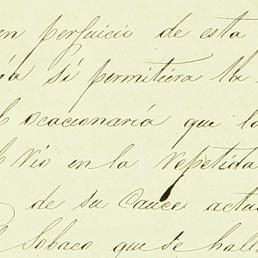 en perjuicio de esta
ia si permitiera la
ocacionaría que la
Rio en la repetida
de su Cauce actu
Sobaco que se hall